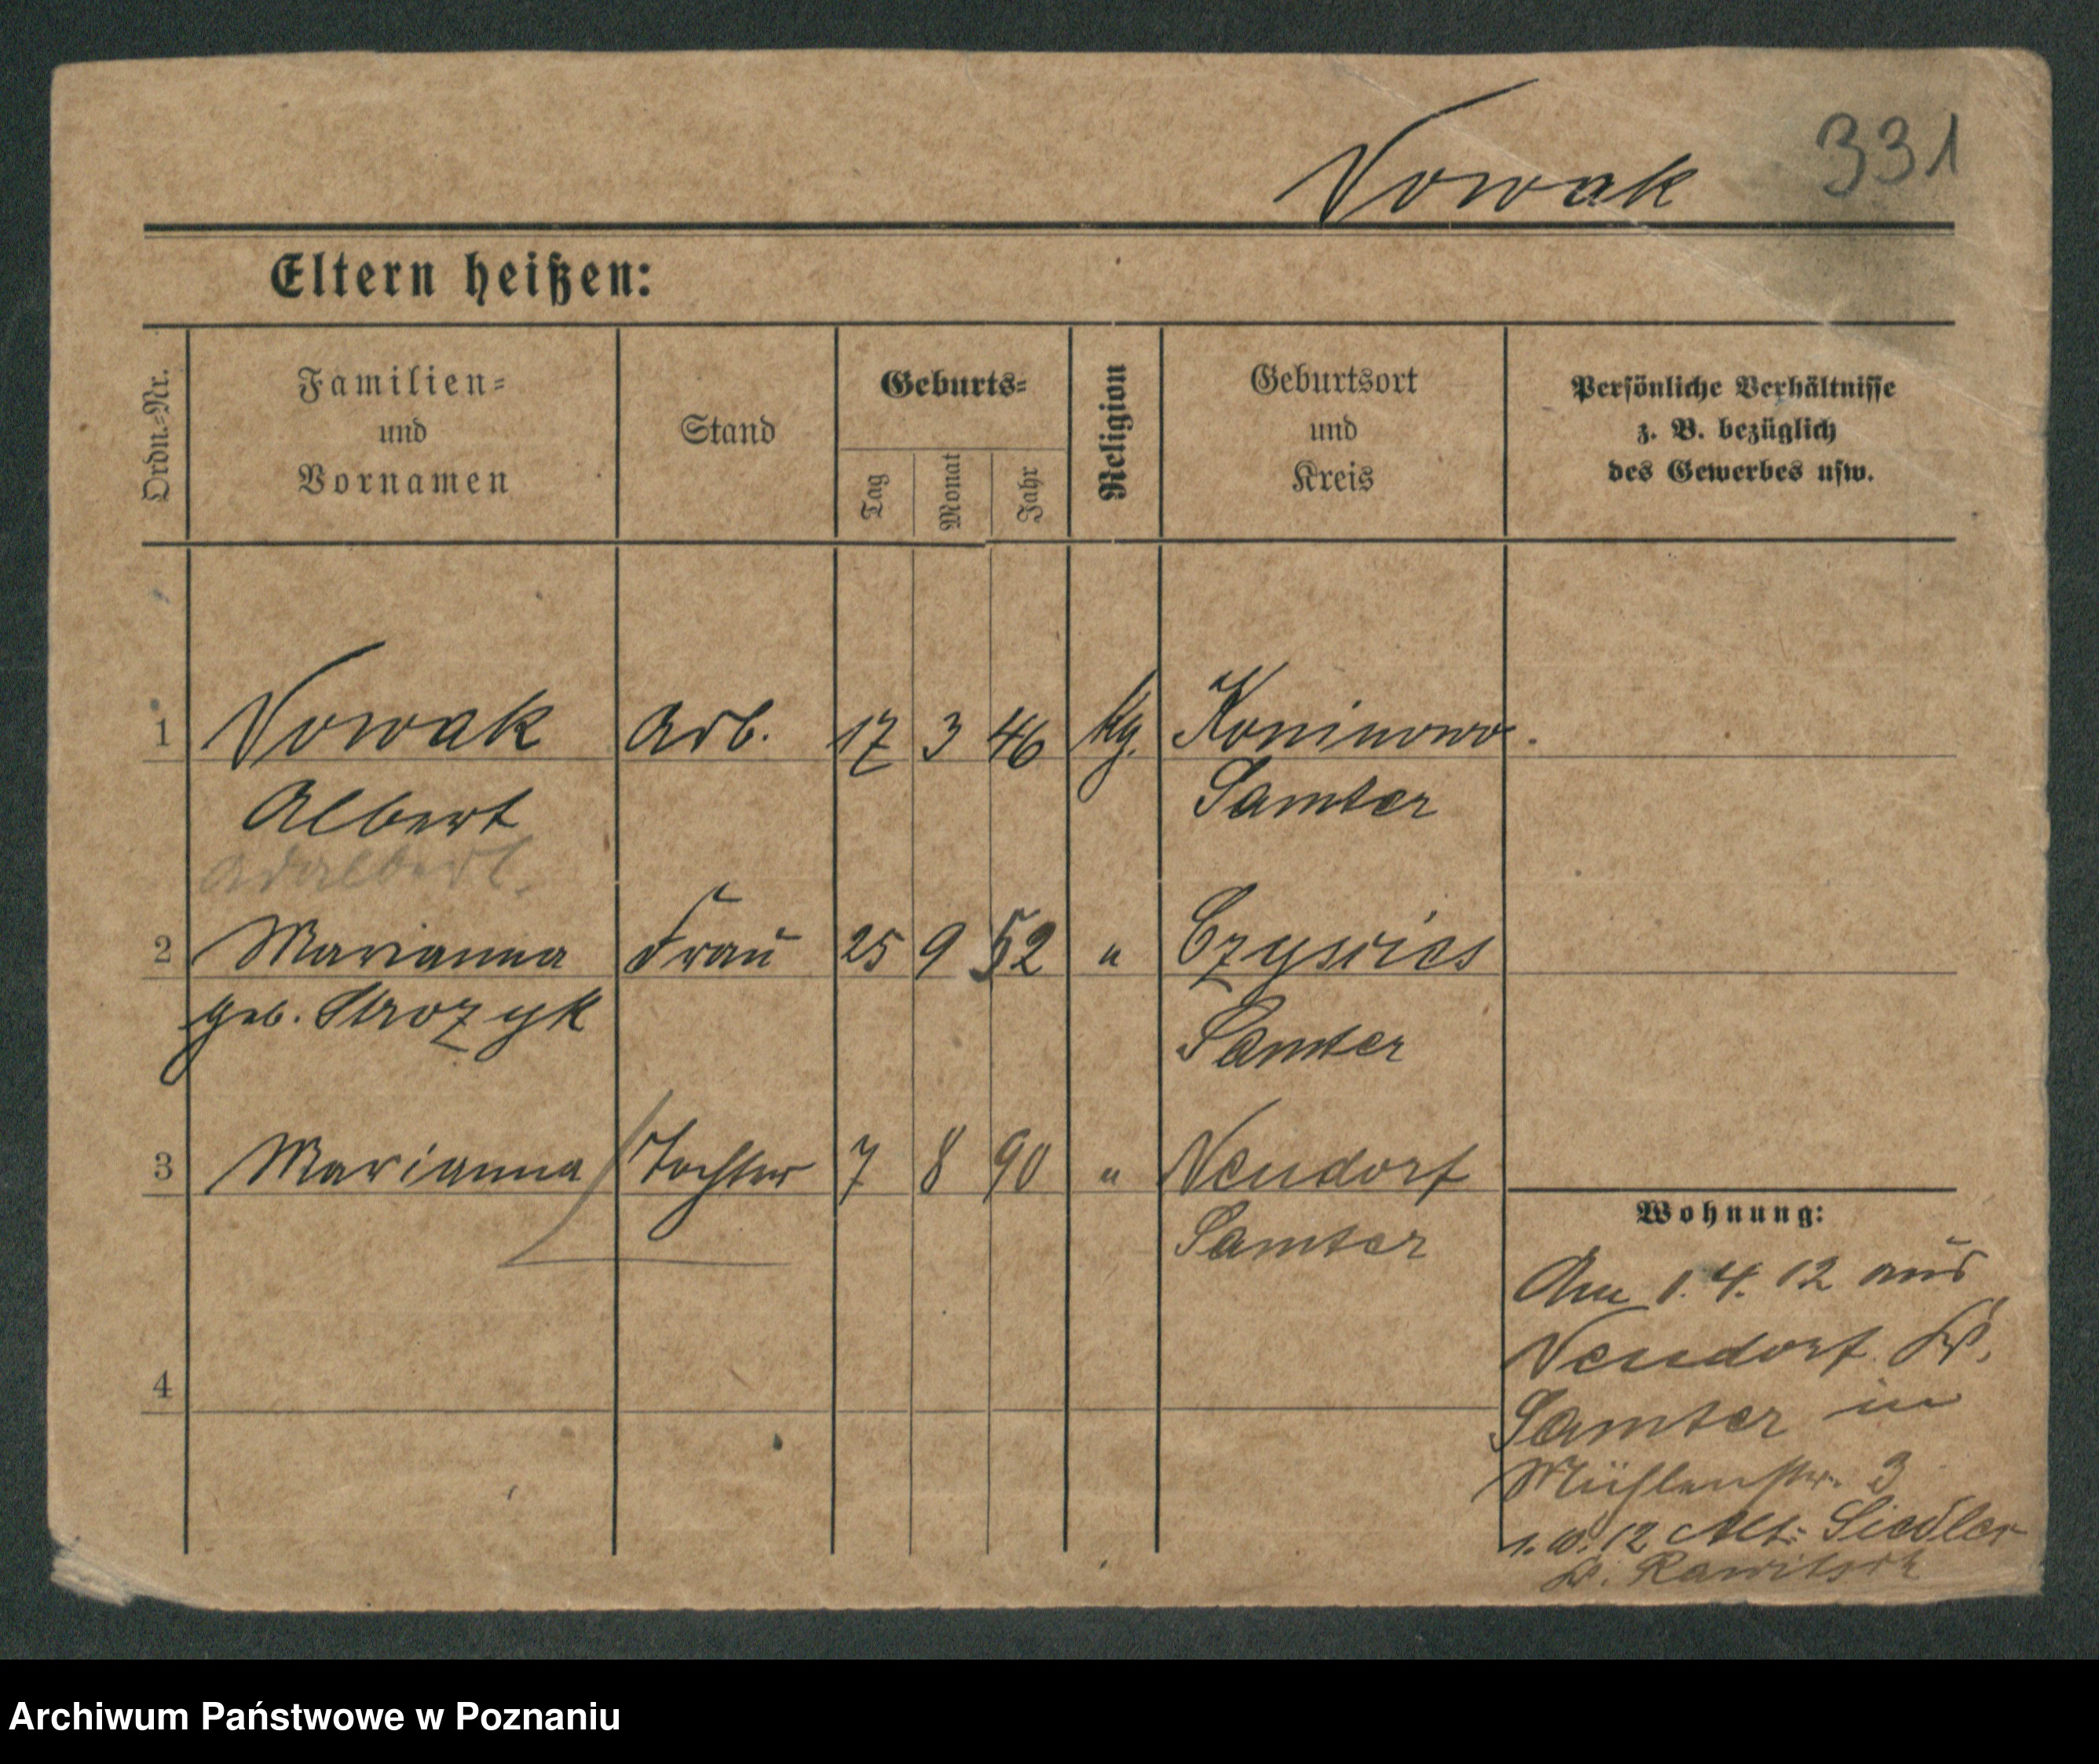 331
Nowak
Eltern heißen:
Ordn.-Nr.
Familien- und Vornamen
Stand
Geburts-
Tag
Monat
Jahr
Religion
Geburtsort und Kreis
Persönliche Verhältnisse
z. B. bezüglich
des Gewerbes usw.
1 Nowak Arb. 17 3 46 kg. Koninowo.
Albert Samter
Adalbert.
2 Marianna Frau 25 9 52 "
geb. Strozyk Samter
3 Marianna Tochter 7 8 90 " Neudorf
Samter
4
Wohnung:
Am 1.4.12 aus
Neudorf Kr.
Samter in
Mühlenstr. 3
1.10.12 Alt: Siedler
Kr. Rawitsch
Archiwum Państwowe w Poznaniu